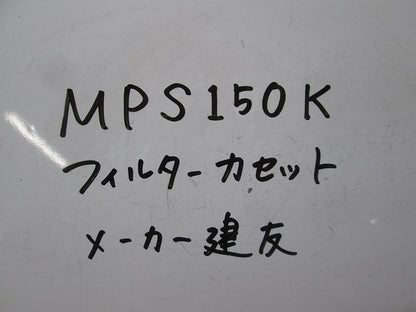 MPS150K
フィルターカセット
メーカー建友